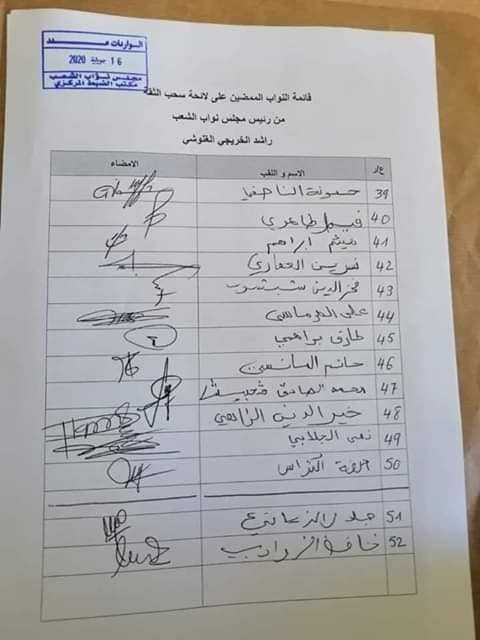 الواردات عـــدد
16 جويلية 2020
مجلس نواب الشعب
مكتب الضبط المركزي
قائمة النواب الممضين على لائحة سحب الثقة
من رئيس مجلس نواب الشعب
راشد الخريجي الغنوشي
ع/ر الاسم و اللقب الامضاء
39 حسونة الناصفي
40 فيصل طاهري
41 ميثم ابراهم
42 نسرين العماري
43 فخر الدين شبشوب
44 علي الهرماسي
45 طارق براهمي
46 حاتم المانسي
47 محمد الصادق
48 خير الدين الزاهي
49 نهى
50 الكراس
51 جلال الزعاتي
52 الزوادي